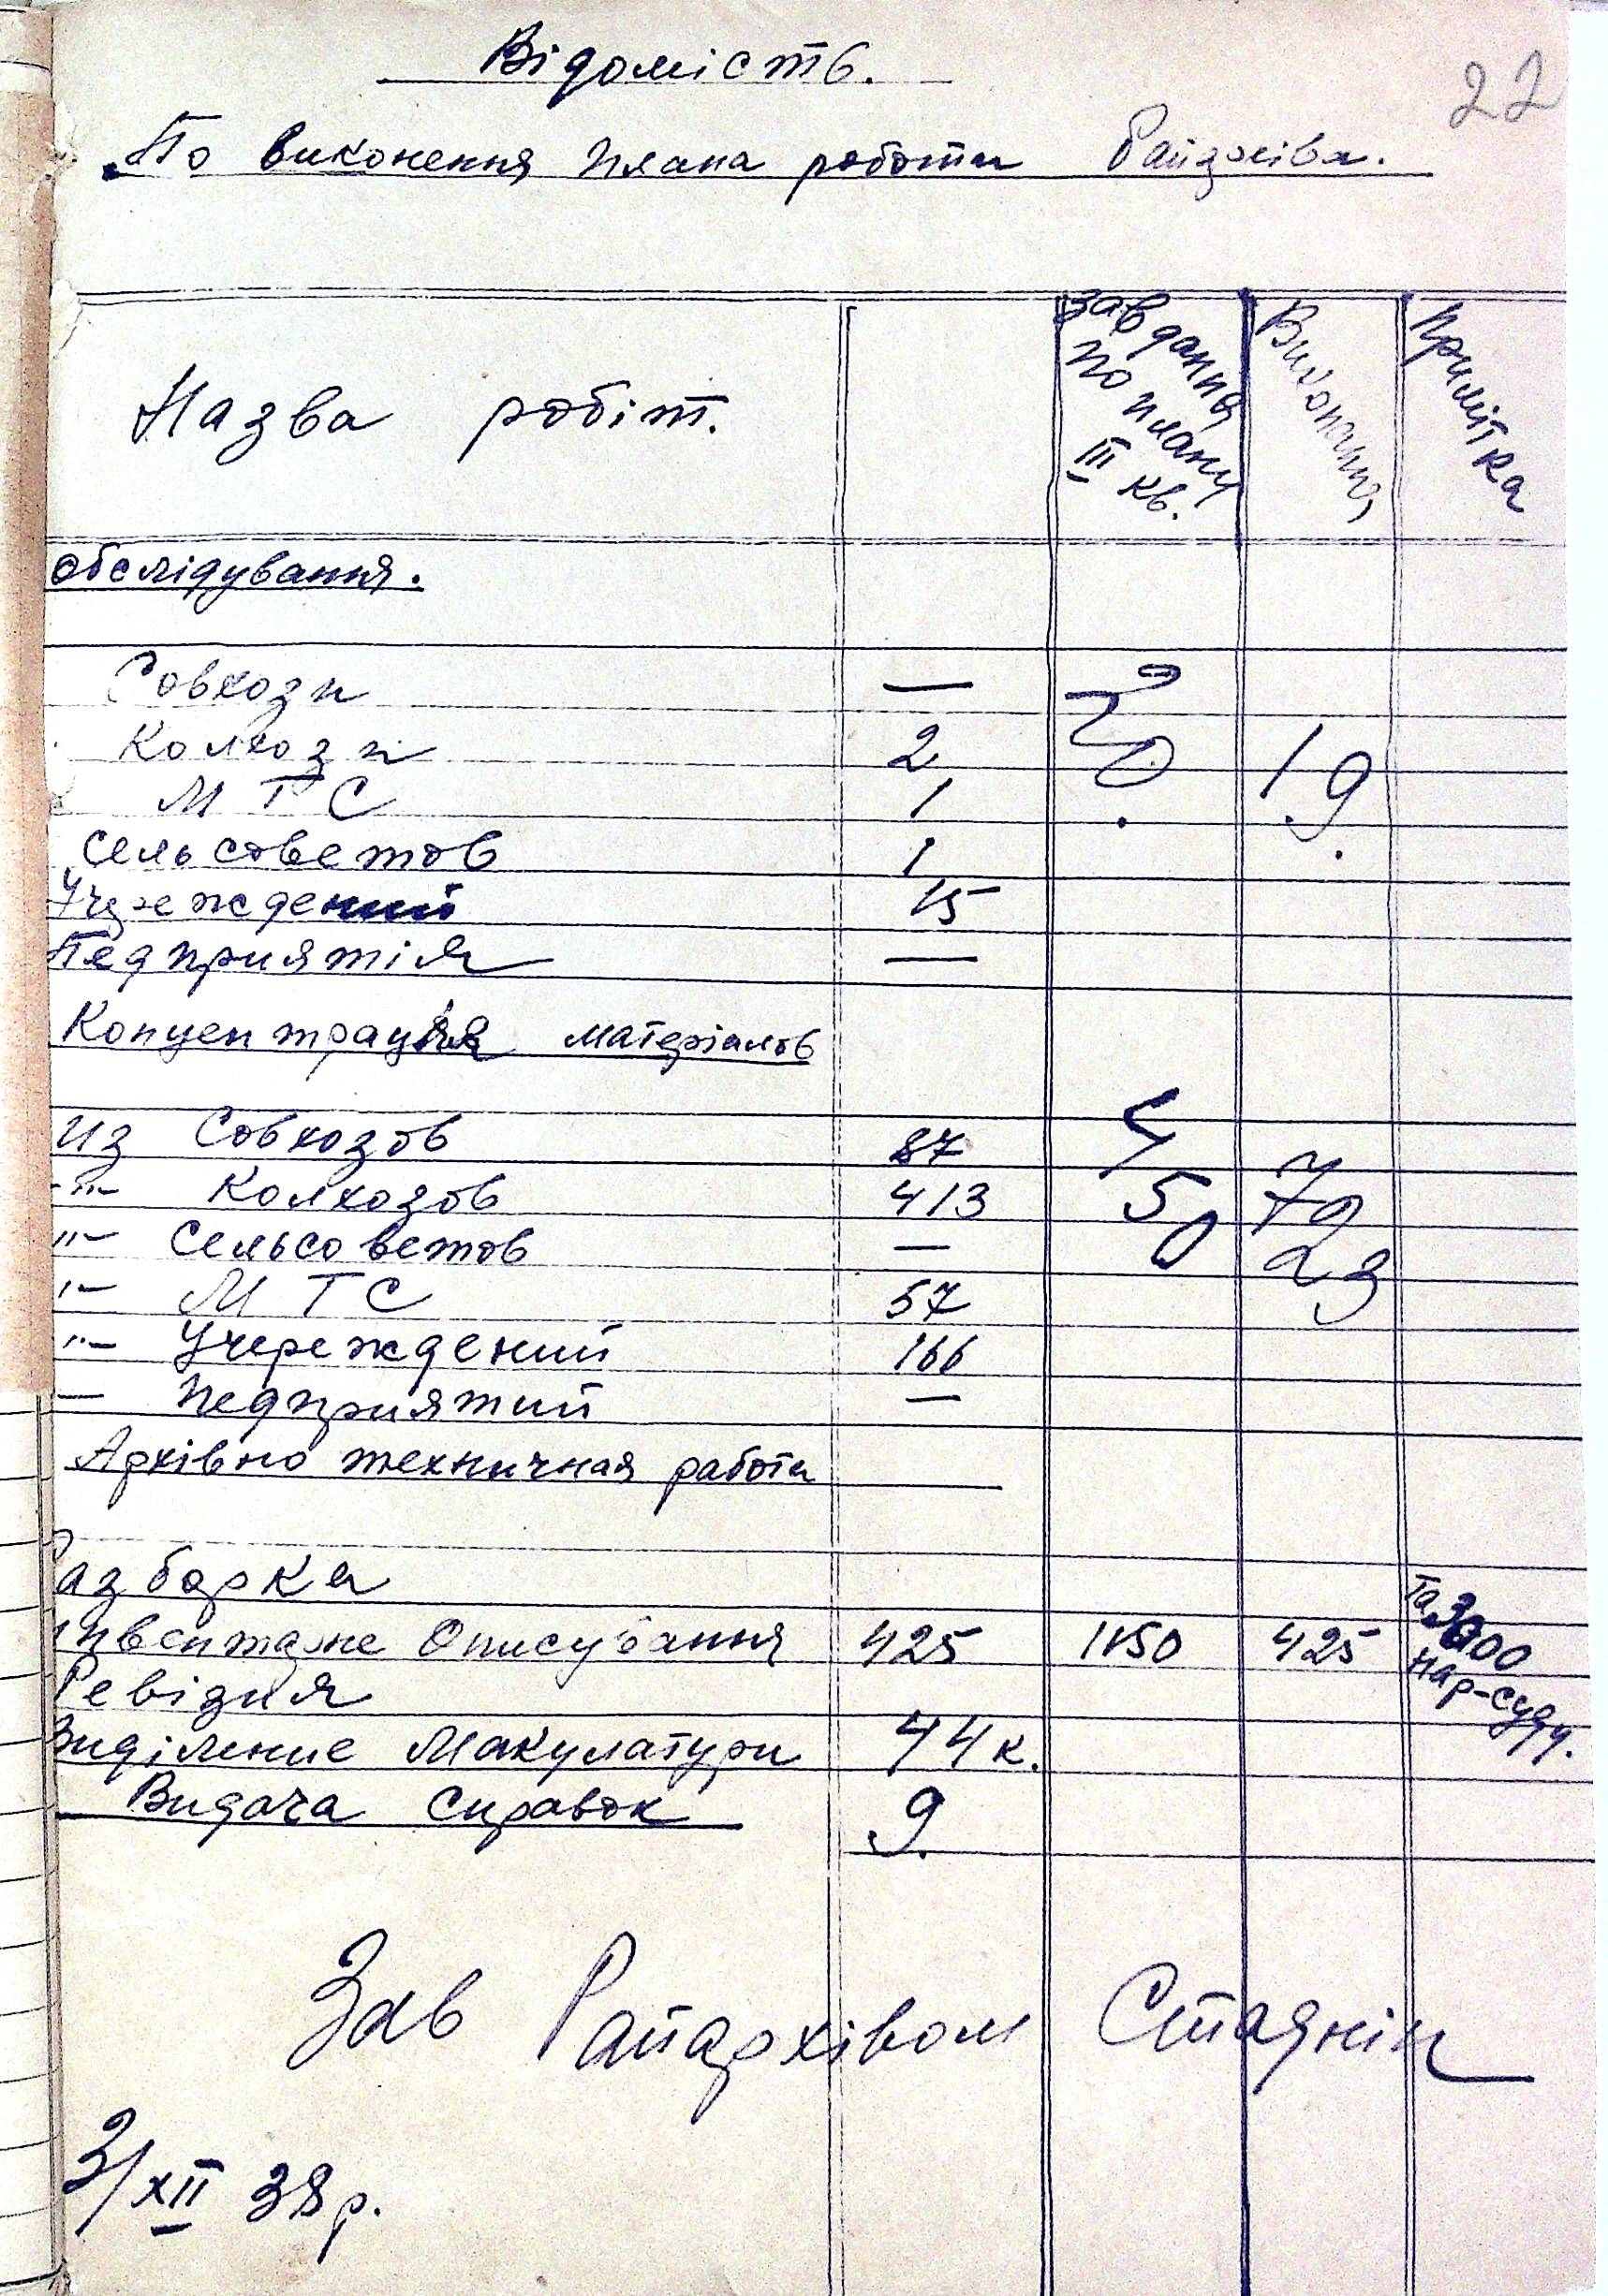 22
Відомість.
По виконення плана роботи Райархіва.
Назва робіт. Завдання по плану III кв. Виконання Примітка
Обслідування.
Совхози —
Колхози 2 30 19
МТС 1
Сельсоветов 1
Учереждений 15
Педприятія —
Концентрація матеріалов
Из Совхозов 87
-"- Колхозов 413 450 723
"- Сельсоветов —
"- МТС 57
"- Учереждений 166
— Педприятий —
Архівно техничная работа
Разборка
Інвентарне Описування 425 1150 425 та 3000 нар-суду.
Ревізия
Виділение Макулатури 44 к.
Видача Справок 9.
Зав Райархівом
3/XII 38 р.